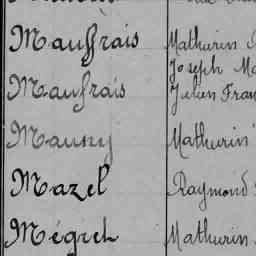 Mauffrais Mathurin
Joseph
Maufrais Julien Fran
Mauny Mathurin
Mazel Raymond
Mégret Mathurin